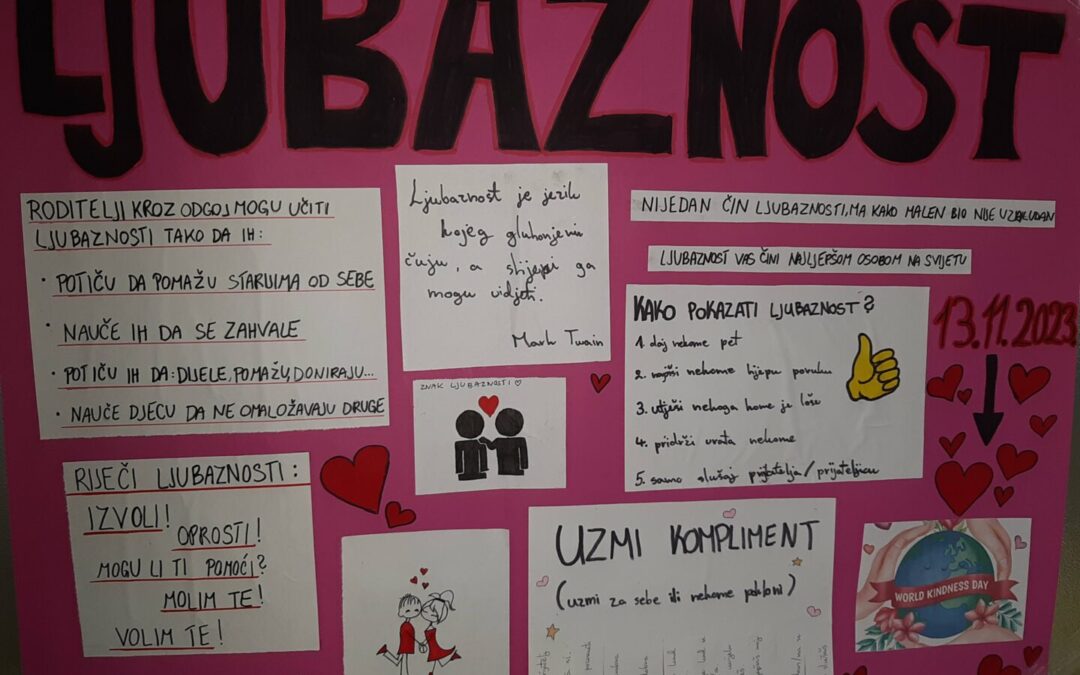 LJUBAZNOST
RODITELJI KROZ ODGOJ MOGU UČITI
LJUBAZNOSTI TAKO DA IH:
· POTIČU DA POMAŽU STARIJIMA OD SEBE
· NAUČE IH DA SE ZAHVALE
· POTIČU IH DA: DIJELE, POMAŽU, DONIRAJU...
· NAUČE DJECU DA NE OMALOŽAVAJU DRUGE
RIJEČI LJUBAZNOSTI:
IZVOLI!
OPROSTI!
MOGU LI TI POMOĆI?
MOLIM TE!
VOLIM TE!
Ljubaznost je jezik
kojeg gluhonjemi
čuju, a slijepi ga
mogu vidjeti.
Mark Twain
ZNAK LJUBAZNOSTI ♡
NIJEDAN ČIN LJUBAZNOSTI, MA KAKO MALEN BIO NIJE UZALUDAN
LJUBAZNOST VAS ČINI NAJLJEPŠOM OSOBOM NA SVIJETU
KAKO POKAZATI LJUBAZNOST?
1. daj nekome pet
2. nekome lijepu poruku
3. utješi nekoga kome je loše
4. pridrži vrata nekome
5. samo slušaj prijatelja/prijateljicu
13.11.2023.
UZMI KOMPLIMENT
(uzmi za sebe ili nekome pokloni)
WORLD KINDNESS DAY